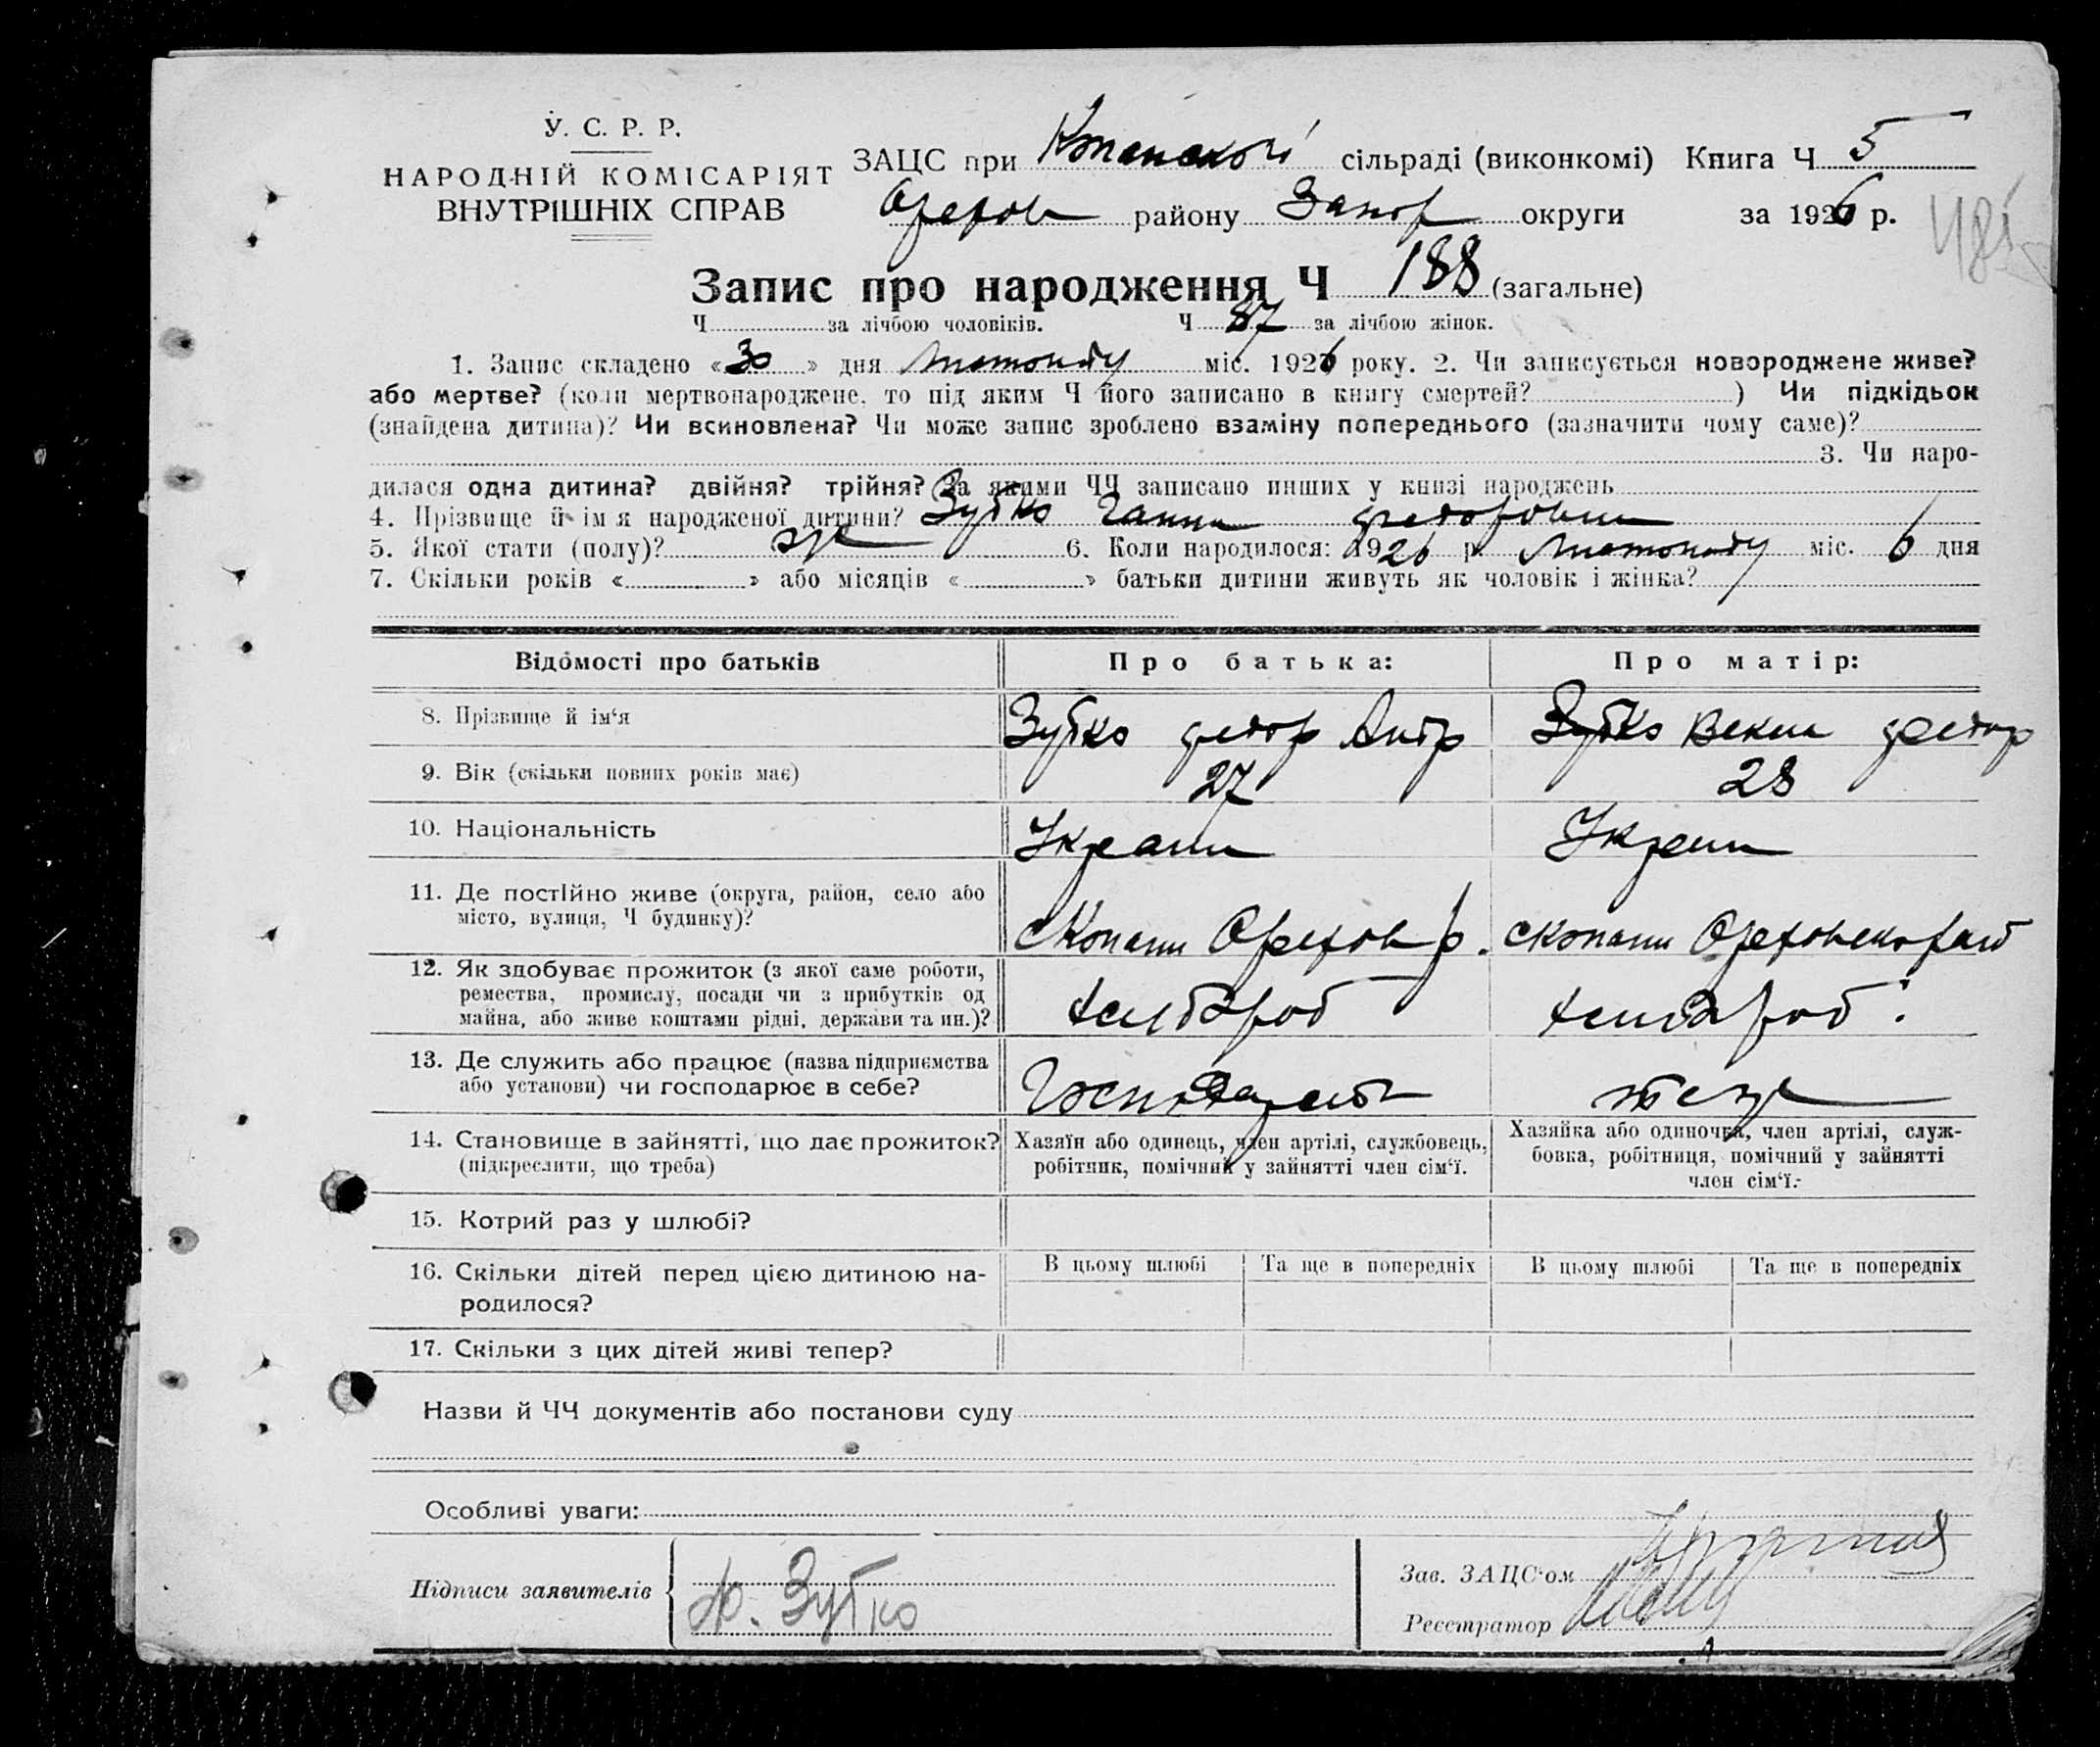 У. С. Р. Р.
НАРОДНІЙ КОМІСАРІЯТ
ВНУТРІШНІХ СПРАВ
ЗАЦС при Копанской сільраді (виконкомі) Книга Ч 5
Орехов району Запор округи за 1926 р.
Запис про народження Ч 188 (загальне)
Ч за лічбою чоловіків. Ч 87 за лічбою жінок.
1. Запис складено «30» дня листопаду міс. 1926 року. 2. Чи записується новороджене живе?
або мертве? (коли мертвонароджене, то під яким Ч його записано в книгу смертей? ) Чи підкідьок
(знайдена дитина)? Чи всиновлена? Чи може запис зроблено взаміну попереднього (зазначити чому саме)?
3. Чи наро-
дилася одна дитина? двійня? трійня? За якими ЧЧ записано инших у книзі народжень
4. Прізвище й ім я народженої дитини? Зубко Ганна Федоровна
5. Якої стати (полу)? ж 6. Коли народилося: 1926 р. листопаду міс. 6 дня
7. Скільки років « » або місяців « » батьки дитини живуть як чоловік і жінка?
Відомості про батьків Про батька: Про матір:
8. Прізвище й ім‘я Зубко Федор Андр Зубко Векла Федор
9. Вік (скільки повних років має) 27 28
10. Національність Украин Украин
11. Де постійно живе (округа, район, село або
місто, вулиця, Ч будинку)? с Копани Орехов р. с Копани Ореховско
12. Як здобуває прожиток (з якої саме роботи,
ремества, промислу, посади чи з прибутків од
майна, або живе коштами рідні, держави та ин.)? хлібороб хлібороб
13. Де служить або працює (назва підприємства
або установи) чи господарює в себе? теж
14. Становище в зайнятті, що дає прожиток?
(підкреслити, що треба)
Хазяїн або одинець, член артілі, службовець,
робітник, помічний у зайнятті член сім‘ї.
Хазяйка або одиночка, член артілі, служ-
бовка, робітниця, помічний у зайнятті
член сім‘ї.
15. Котрий раз у шлюбі?
16. Скільки дітей перед цією дитиною на-
родилося?
В цьому шлюбі Та ще в попередніх В цьому шлюбі Та ще в попередніх
17. Скільки з цих дітей живі тепер?
Назви й ЧЧ документів або постанови суду
Особливі уваги:
Підписи заявителів Ф. Зубко
Зав. ЗАЦС‘ом
Реєстратор